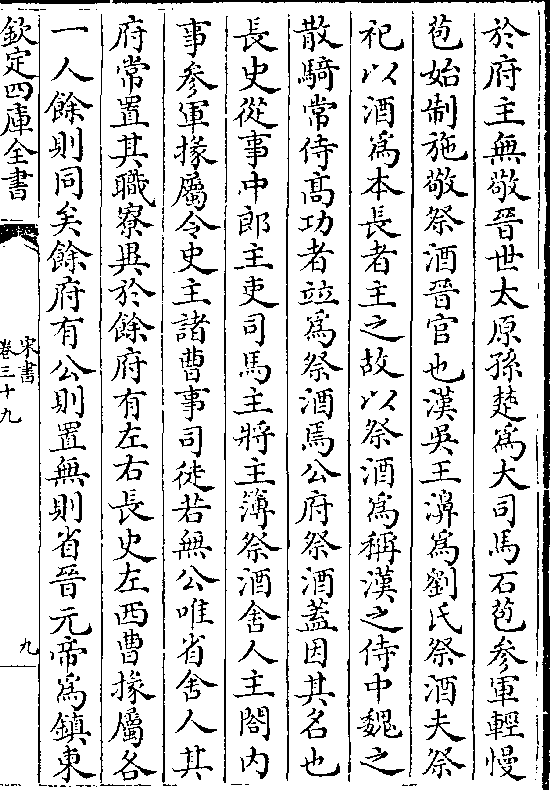 於府主無敬晉世太原孫楚爲大司馬石苞參軍輕慢
苞始制施敬祭酒晉官也漢吳王濞爲劉氏祭酒夫祭
祀以酒爲本長者主之故以祭酒爲稱漢之侍中魏之
散騎常侍髙功者竝爲祭酒焉公府祭酒蓋因其名也
長史從事中郎主吏司馬主將主簿祭酒舍人主閤内
事參軍掾屬令史主諸曹事司徒若無公唯省舍人其
府常置其職寮異於餘府有左右長史左西曹掾屬各
一人餘則同矣餘府有公則置無則省晉元帝爲鎮東
欽定四庫全書
宋書
卷三十九
九